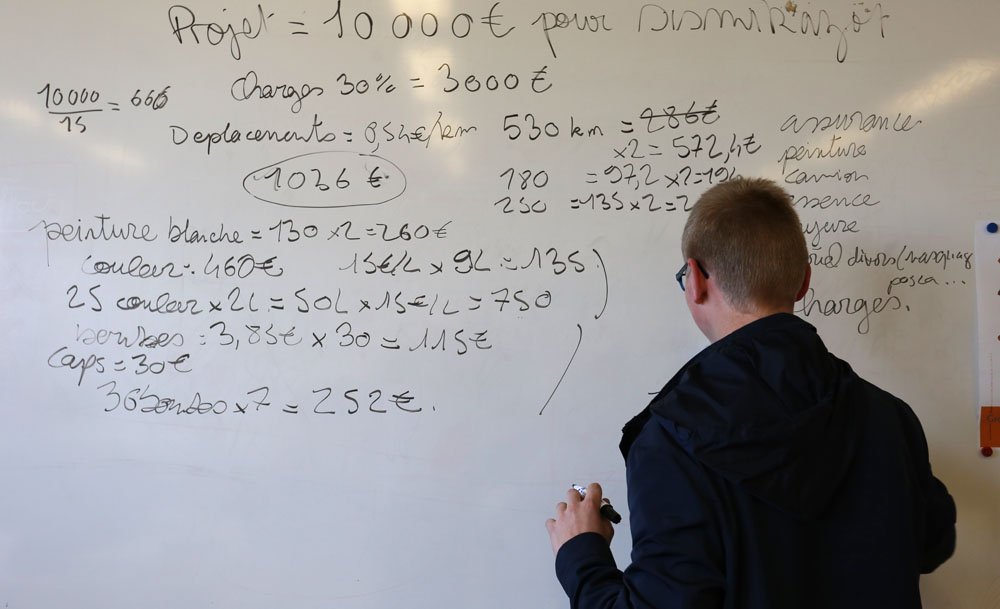 Projet = 10 000 € pour
Charges 30% = 3000 €
10 000 / 15 = 666
Deplacements = 0,54€/km 530 km = 286€
×2 = 572,4€
1036 €
180 = 97,2 ×2=194
250 = 135 ×2=2
assurance
peinture
camion
essence
divers (masques
posca...
charges.
peinture blanche = 130 ×2=260€
couleur: 460€ 15€/L × 9L = 135
25 couleur × 2L = 50L × 15€/L = 750
= 3,85€ × 30 = 115€
Caps = 30€
36 bombes × 7 = 252€.